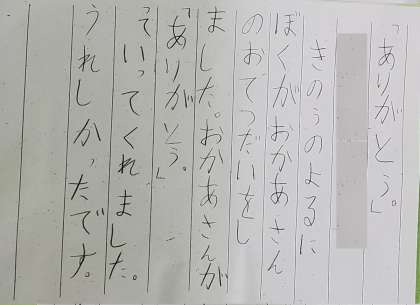 「ありがとう。」
きのうのよるに
ぼくがおかあさん
のおてつだいをし
ました。おかあさんが
「ありがとう。」
っていってくれました。
うれしかったです。